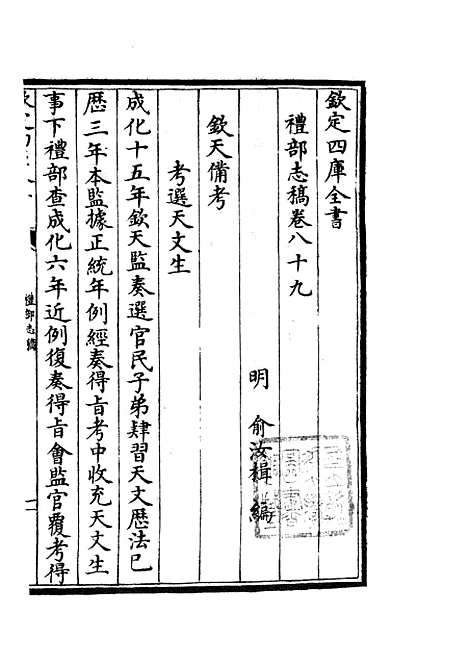 欽定四庫全書
禮部志稿卷八十九
明 俞汝楫 編
欽天備考
考選天文生
成化十五年欽天監奏選官民子弟肄習天文歴法已
歴三年本監據正統年例經奏得旨考中收充天文生
事下禮部查成化六年近例復奏得旨會監官覆考得
禮部志稿
一